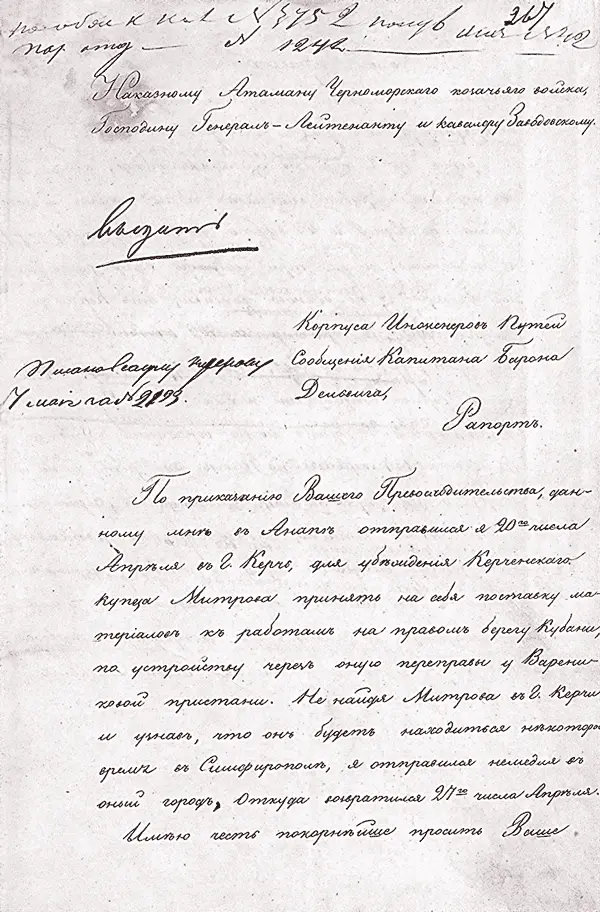 367
№ 3752
№ 1242
Наказному Атаману Черноморскаго козачьяго войска,
Господину Генералъ-Лейтенанту и кавалеру Завадовскому.
Корпуса Инженеровъ Путей
Сообщенія Капитана Барона
7 мая № 2193
Дельвига,
Рапортъ.
По приказанію Вашего Превосходительства, дан-
ному мнѣ въ Анапѣ отправился я 20го числа
Апрѣля въ г. Керчь, для убѣжденія Керченскаго
купца Митрова принять на себя поставку ма-
теріаловъ къ работамъ на правомъ берегу Кубани,
по устройству черезъ оную переправы у Варени-
ковой пристани. Не найдя Митрова въ г. Керчи
и узнавъ, что онъ будетъ находиться нѣкоторое
время въ Симферополѣ, я отправился немедля въ
оный городъ, откуда возвратился 27го числа Апрѣля.
Имѣю честь покорнѣйше просить Ваше